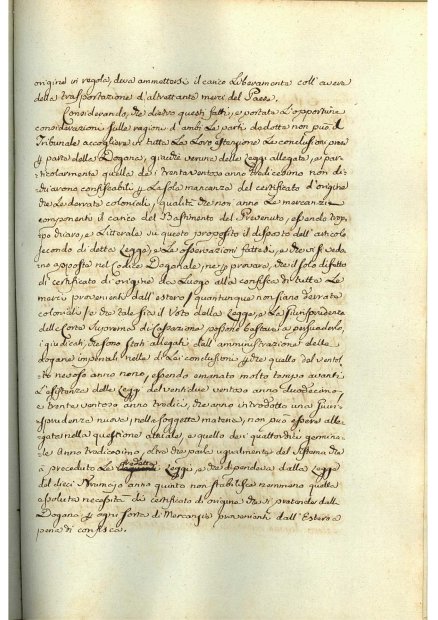 origine in regola, deva ammettersi il carico Liberamente coll' avere
della trasportazione d'altrettante merci del Paese.
Considerando, che dietro questi fatti, e portate L'opportune
considerazioni sulle ragioni d'ambi Le parti dedotte non può il
Tribunale accogliere in tutta La Loro estenzione Le conclusioni prese
parte della Dogana, giacchè veruna delle Leggi allegate, e par-
ticolarmente quella dei trenta ventoso anno tredicesimo non di-
chiarono confiscabili La sola mancanza del certificato d'origine
che Le derrate coloniali, qualità che non anno Le mercanzie
componenti il carico del Bastimento del Prevenuto, essendo trop-
po chiaro, e Litterale su questo proposito il disposto dell' articolo
secondo di detta Legge, e Le osservazioni fattesi, e che si vede
no apposte nel Codice Doganale, ne provare, che il solo difetto
di certificato di origine dia Luogo alla confisca di tutte Le
merci provenienti dall' estero quantunque non siano derrate
coloniali, che tale sia il Voto della Legge, e La Giurisprudenza
della Corte Suprema di Cassazione possono bastare a persuaderlo,
i giudicati, che sono stati allegati dall' amministrazione delle
dogane imperiali nelle di Lei conclusioni che quello del vent'ot-
to nevoso anno nono, essendo emanato molto tempo avanti
L'esistenza delle Leggi del ventidue ventoso anno duodecimo,
e trenta ventoso anno tredici, che anno introdotto una Giuri-
sprudenza nuova, nella soggetta materia, non può essere alle-
gato nella questione attuale, e quello dei quattordici germina-
le anno tredicesimo, oltre che parla ugualmente del sistema che
à preceduto Le predotte Leggi, e che dipendeva dalla Legge
del dieci Brumajo anno quinto non stabilisce nemmeno quella
assoluta necessità di certificato di origine che si pretende dalla
Dogana ogni sorta di Mercanzie provenienti dall' Estero a
pena di confisca.